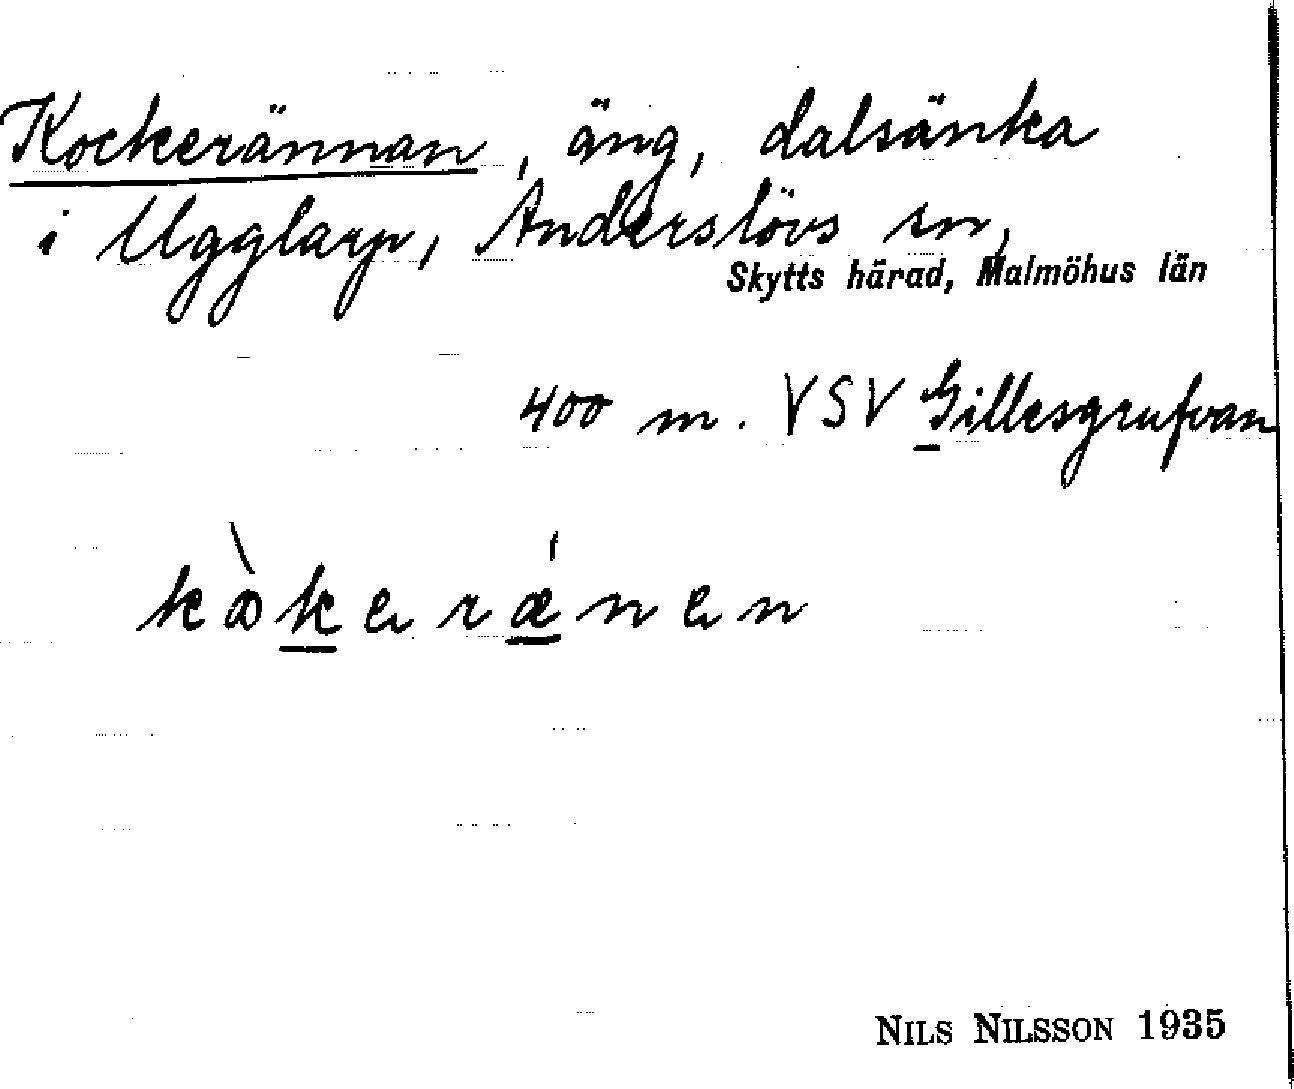 Kockerännan, äng, dalsänka
i Ugglarp, Anderslövs sn,
Skytts härad, Malmöhus län
400 m. VSV Gillesgrufvan
kòkerǽnen
NILS NILSSON 1935